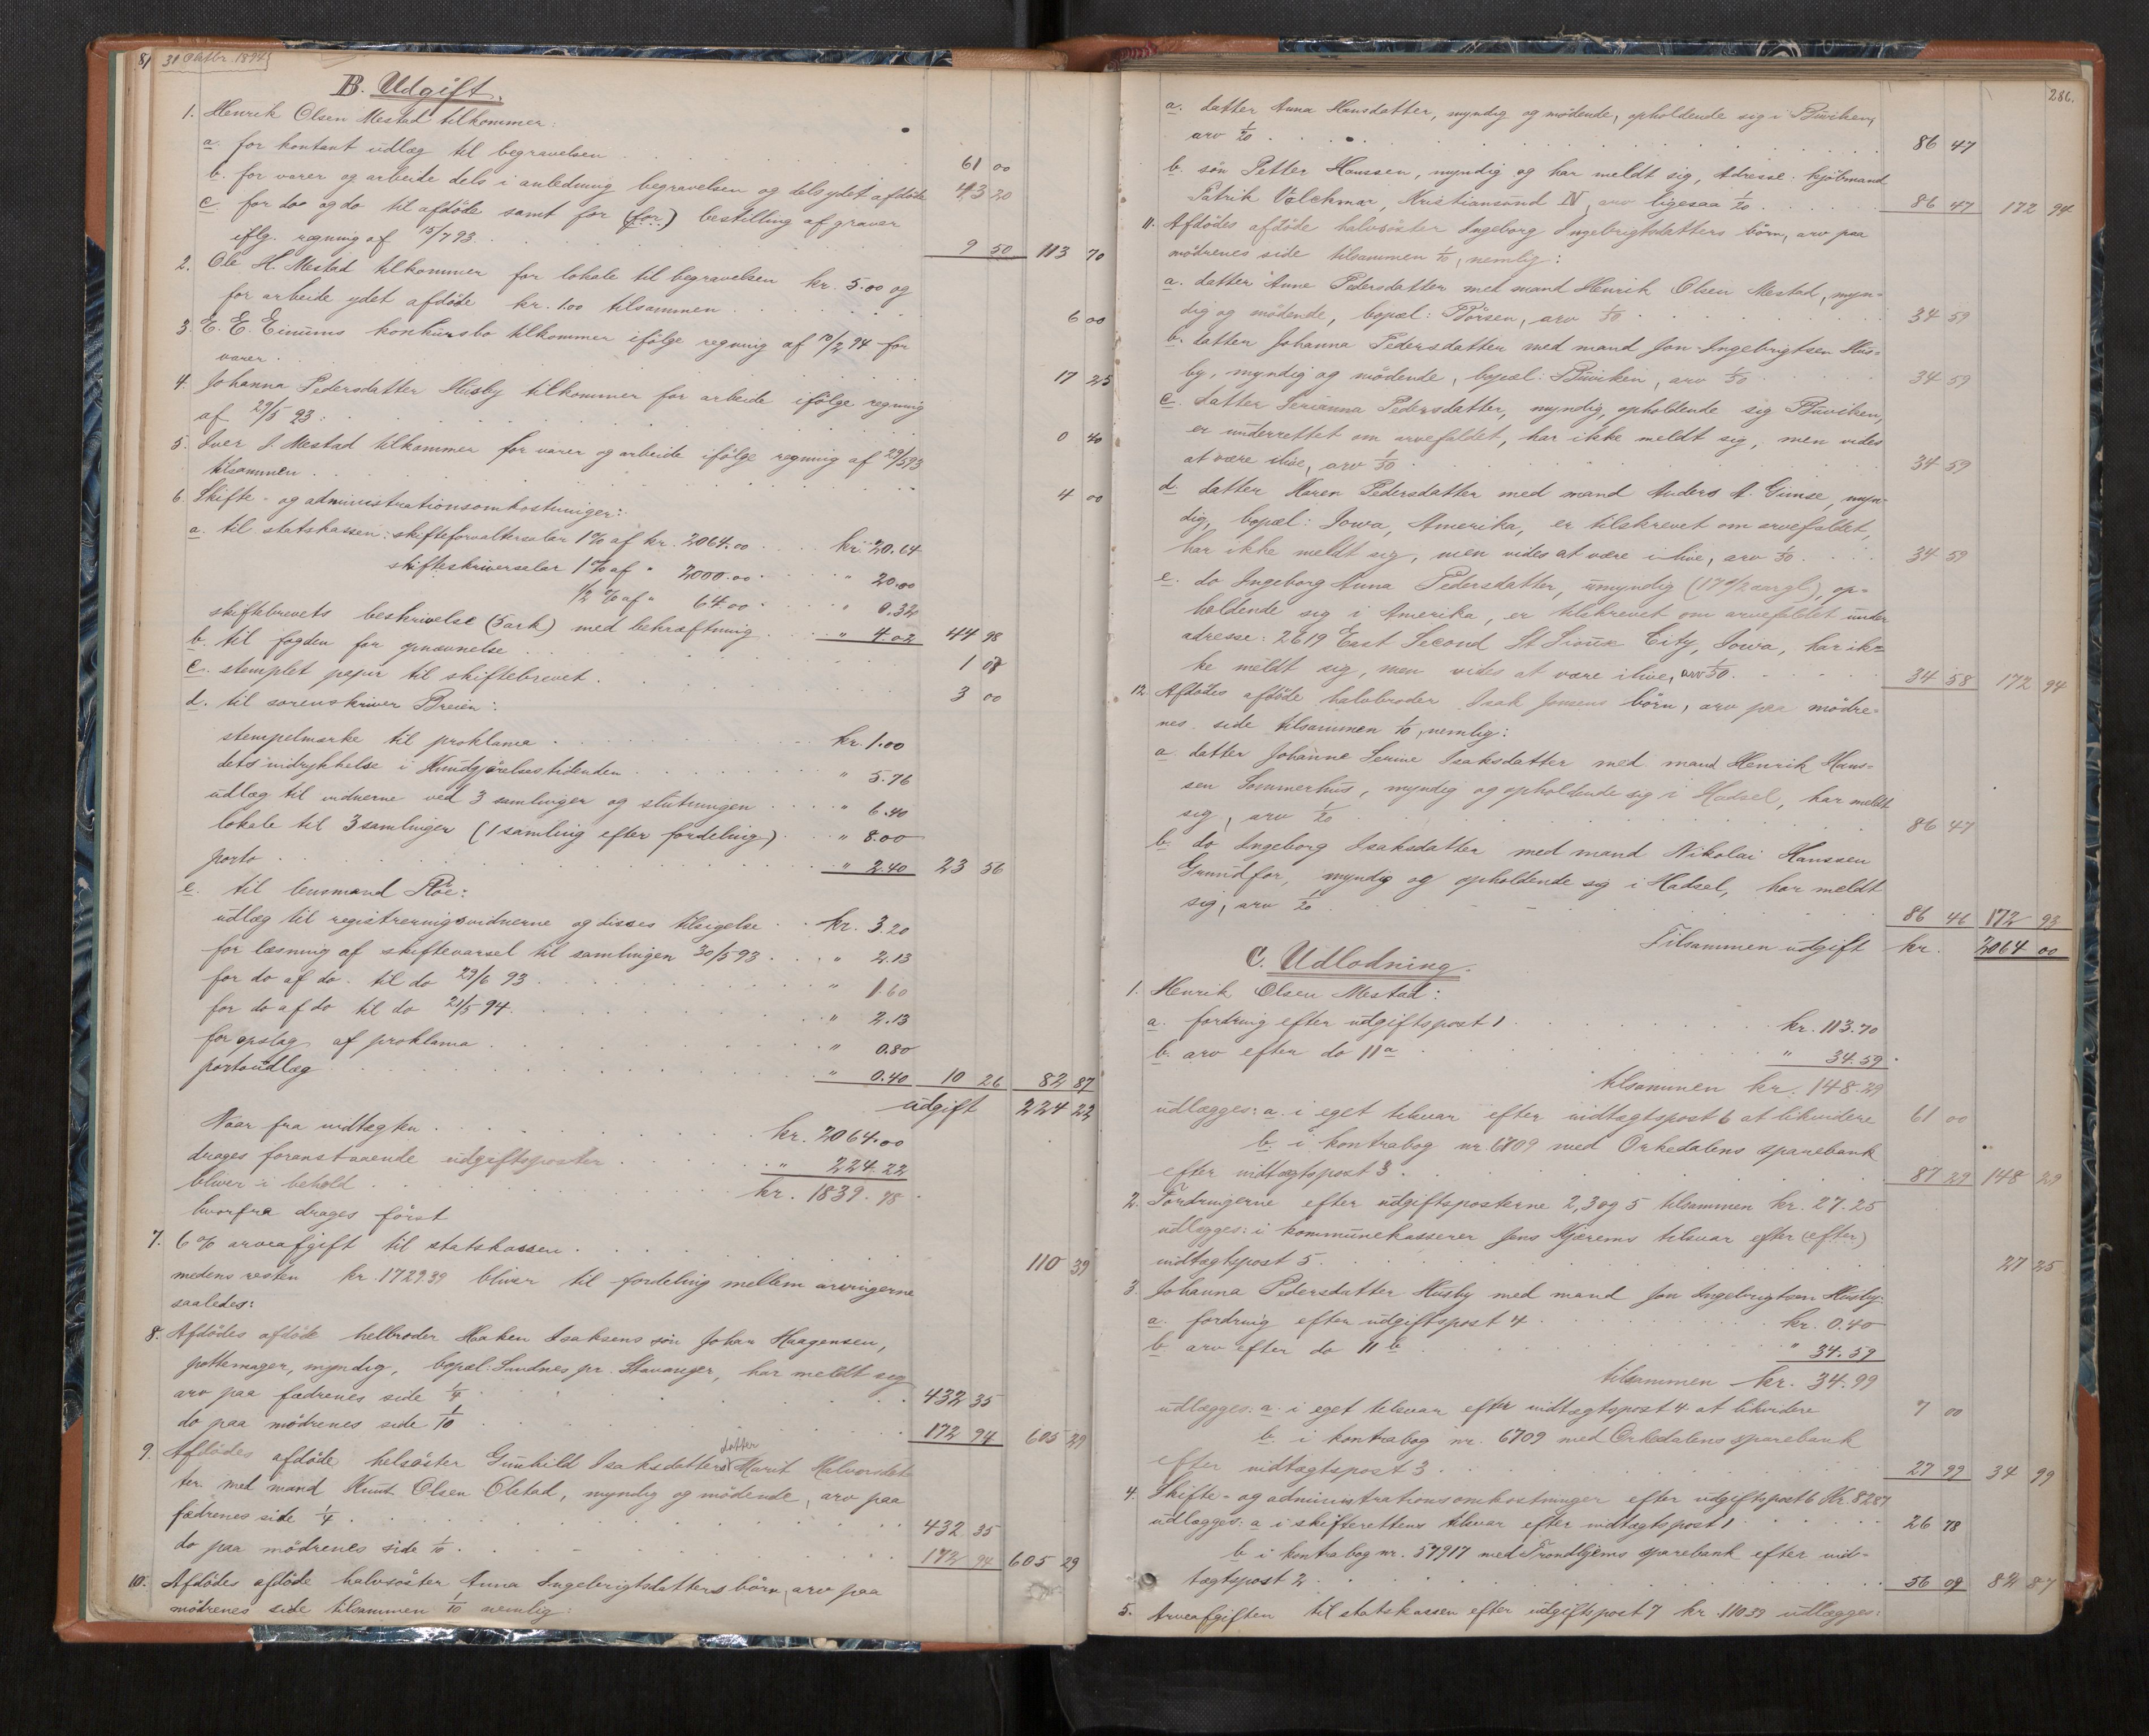 8/ 31 Oktbr. 1894
B. Udgift.
1. Henrik Olsen Mestad tilkommer:
a. for kontant udlæg til begravelsen . . . 61 00
b. for varer og arbeide dels i anledning begravelsen og dels ydet afdöde 43 20
c. for do og do til afdöde samt for (for) bestilling af graver
iflg. regning af 15/7 93. . . . 9 50 113 70
2. Ole H. Mestad tilkommer for lokale til begravelsen kr. 5.00 og
for arbeide ydet afdöde kr. 1.00 tilsammen . . . 6 00
3. E. E. Einums konkursbo tilkommer ifölge regning af 10/2 94 for
varer . . . 17 25
4. Johanna Pedersdatter Husby tilkommer for arbeide ifölge regning
af 29/5 93: . . . 0 40
5. Iver I. Mestad tilkommer for varer og arbeide ifölge regning af 29/5 93
tilsammen . . . 4 00
6. Skifte- og administrationsomkostninger:
a. til statskassen: skifteforvaltersalær 1% af kr. 2064.00 . . . kr. 20.64
skifteskriversalær 1% af " 2000.00 . . . " 20.00
1/2 % af " 64.00 . . . " 0.32
skiftebrevets beskrivelse (5 ark) med bekræftning . . . " 4.02 44 98
b. til fogden for opnævnelse . . . 1 07
c. stemplet papir til skiftebrevet . . . 3 00
d. til sorenskriver Breien:
stempelmarke til proklama . . . kr. 1.00
dets indrykkelse i Kundgjörelsestidenden . . . " 5.76
udlæg til vidnerne ved 3 samlinger og slutningen . . . " 6.40
lokale til 3 samlinger (1 samling efter fordeling) . . . " 8.00
porto . . . " 2.40 23 56
e. til lensmand Röe:
udlæg til registreringsvidnerne og disses tilsigelse . . kr. 3.20
for læsning af skiftevarsel til samlingen 30/5 93 . . . " 2.13
for do af do. til do 29/6 93 . . . " 1.60
for do af do til do 21/5 94 . . . " 2.13
for opslag af proklama . . . " 0.80
portoudlæg . . . " 0.40 10 26 82 87
udgift 224 22
Naar fra indtægten . . . kr. 2064.00
drages foranstaaende udgiftsposter . . . " 224.22
bliver i behold . . . kr. 1839.78
hvorfra drages först
7. 6% arveafgift til statskassen . . . 110 39
medens resten kr. 1729.39 bliver til fordeling mellem arvingerne
saaledes:
8. Afdödes afdöde helbroder Haken Isaksens sön Johan Haagensen,
pottemager, myndig, bopæl: Sandnes pr. Stavanger, har meldt sig
arv paa fædrenes side 1/4 . . . 432 35
do paa mödrenes side 1/10 . . . 172 94 605 29
9. Afdödes afdöde helsöster Gunhild Isaksdatters datter Marit Halvorsdat-
ter med mand Knut Olsen Olstad, myndig og mödende, arv paa
fædrenes side 1/4 . . . 432 35
do paa mödrenes side 1/10 . . . 172 94 605 29
10. Afdödes afdöde halvsöster Anna Ingebrigtsdatters börn, arv paa
mödrenes side tilsammen 1/10 nemlig:
286.
a. datter Anna Hansdatter, myndig og mödende, opholdende sig i Buviken,
arv 1/20 . . . 86 47
b. sön Petter Hanssen, myndig og har meldt sig, Adresse: kjöbmand
Patrik Volckmar, Kristiansund N, arv ligesaa 1/20 . . . 86 47 172 94
11. Afdödes afdöde halvsöster Ingeborg Ingebrigtsdatters börn, arv paa
mödrenes side tilsammen 1/10, nemlig:
a. datter Anne Pedersdatter med mand Henrik Olsen Mestad, myn-
dig og mödende, bopæl: Börsen, arv 1/50 . . . 34 59
b. datter Johanna Pedersdatter med mand Jon Ingebrigtsen Hus-
by, myndig og mödende, bopæl: Buviken, arv 1/50 . . . 34 59
c. datter Serianna Pedersdatter, myndig, opholdende sig Buviken,
er underrettet om arvefaldet, har ikke meldt sig, men vides
at være ilive, arv 1/50 . . . 34 59
d. datter Maren Pedersdatter med mand Anders A. Gimse, myn-
dig, bopæl: Iowa, Amerika, er tilskrevet om arvefaldet,
har ikke meldt sig, men vides at være ilive, arv 1/50 . . . 34 59
e. do Ingeborg Anna Pedersdatter, umyndig (17 1/2 aar gl), op-
holdende sig i Amerika, er tilskrevet om arvefaldet under
adresse: 2619 East Second St Sioux City, Iowa, har ik-
ke meldt sig, men vides at være ilive, arv 1/50 . . . 34 58 172 94
12. Afdödes afdöde halvbroder Isak Jonsens börn, arv paa mödre-
nes side tilsammen 1/10, nemlig:
a. datter Johanne Serine Isaksdatter med mand Henrik Hans-
sen Sommerhus, myndig og opholdende sig i Hadsel, har meldt
sig, arv 1/20 . . . 86 47
b. do Ingeborg Isaksdatter med mand Nikolai Hanssen
Grundfor, myndig og opholdende sig i Hadsel, har meldt
sig, arv 1/20 . . . 86 46 172 93
Tilsammen udgift kr. 2064 00
C. Udlodning.
1. Henrik Olsen Mestad:
a. fordring efter udgiftspost 1 . . . kr. 113.70
b. arv efter do 11 a . . . " 34.59
tilsammen kr. 148.29
udlægges: a. i eget tilsvar efter indtægtspost 6 at likvidere 61 00
b. i kontrabog nr. 6709 med Orkedalens sparebank
efter indtægtspost 3 . . . 87 29 148 29
2. Fordringerne efter udgiftsposterne 2, 3 og 5 tilsammen kr. 27.25
udlægges: i kommunekasserer Jens Kjærems tilsvar efter (efter)
indtægtspost 5 . . . 27 25
3. Johanna Pedersdatter Husby med mand Jon Ingebrigtsen Husby:
a. fordring efter udgiftspost 4 . . . kr. 0.40
b. arv efter do 11 b . . . " 34.59
tilsammen kr. 34.99
udlægges: a. i eget tilsvar efter indtægtspost 4 at likvidere 7 00
b. i kontrabog nr. 6709 med Orkedalens sparebank
efter indtægtspost 3 . . . 27 99 34 99
4. Skifte- og administrationsomkostninger efter udgiftspost 6 Kr. 82 87
udlægges: a i skifterettens tilsvar efter indtægtspost 1 . . . 26 78
b i kontrabog nr. 57917 med Trondhjems sparebank efter ind-
tægtspost 2 . . . 56 09 82 87
5. Arveafgiften til statskassen efter udgiftspost 7 kr. 110 39 udlægges: